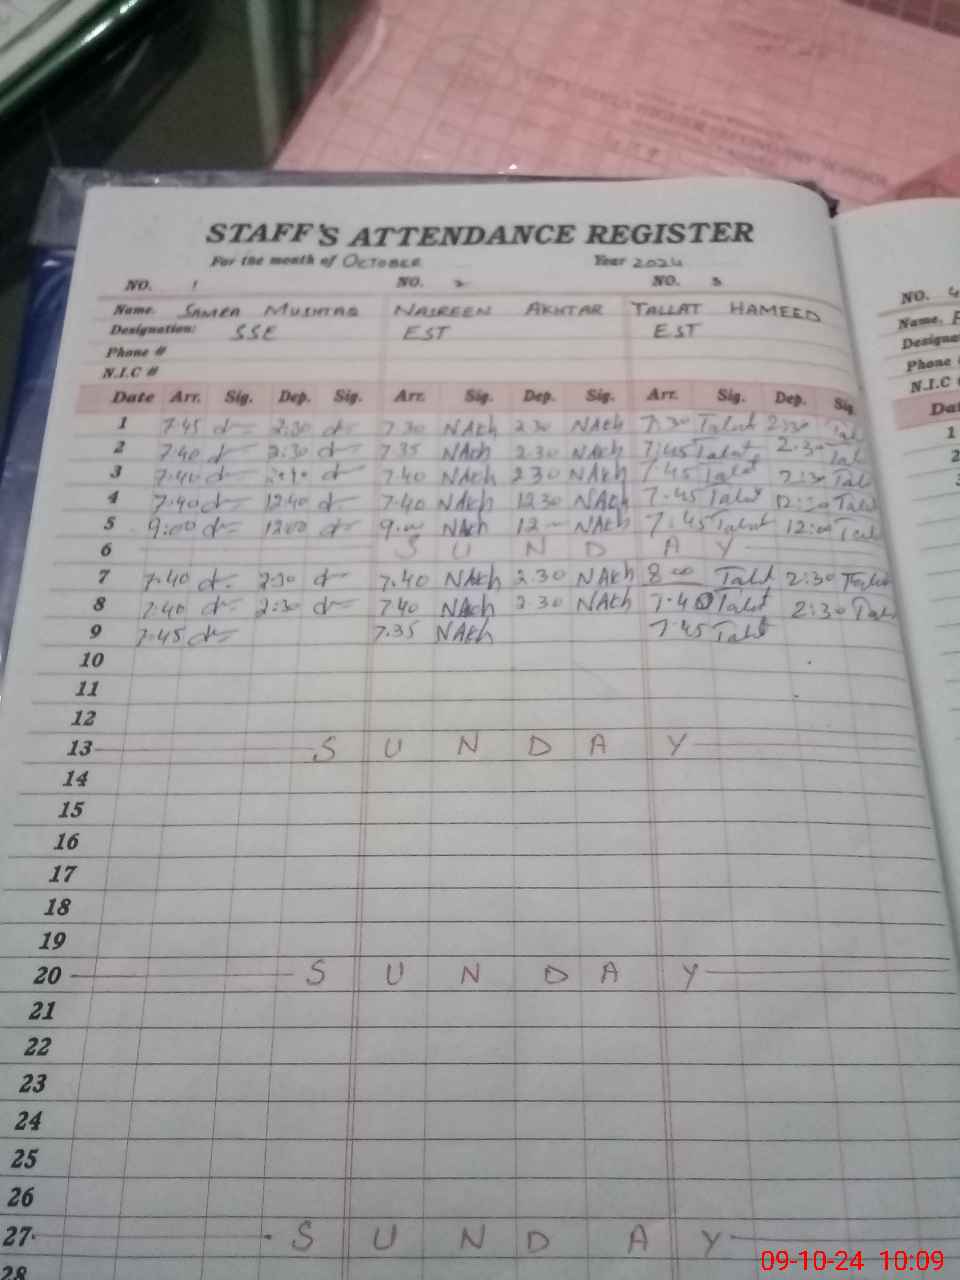 STAFF'S ATTENDANCE REGISTER
For the month of OCTOBER Year 2024
NO. 1 NO. 2 NO. 3
Name. MUSHTAQ AKHTAR TALLAT HAMEED
Designation: SSE EST EST
Phone #
N.I.C #
Date Arr. Sig. Dep. Sig. Arr. Sig. Dep. Sig. Arr. Sig. Dep. Sig.
1 7.45 2:30 7.30 NAkh 2.30 NAkh 7.30 Talat 2:30
2 7.40 2:30 7.35 NAkh 2.30 NAkh 7.45 Talat 2:30 Tal
3 7.40 7.40 NAkh 2.30 NAkh 7.45 Talat 2:30 Tal
4 7.40 12.40 7.40 NAkh 12.30 NAkh 7.45 Talat 12:30 Tal
5 9:00 12:00 9.00 NAkh 12 NAkh 7.45 Talat 12:00 Tal
6 SUNDAY
7 7.40 2:30 7.40 NAkh 2.30 NAkh 8 00 Talt 2:30
8 7:40 2:30 7.40 NAkh 2.30 NAkh 7.40 Talat 2:30 Tal
9 7.45 7.35 NAkh 7.45 Talt
10
11
12
13 SUNDAY
14
15
16
17
18
19
20 SUNDAY
21
22
23
24
25
26
27 SUNDAY
28
NO. 4
Name,
Phone
N.I.C
1
2
09-10-24 10:09